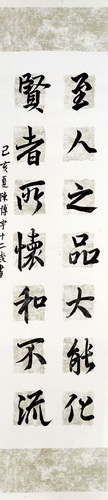 至人之品大能化
賢者所懷和不流
己亥夏陳博宇十二歲書